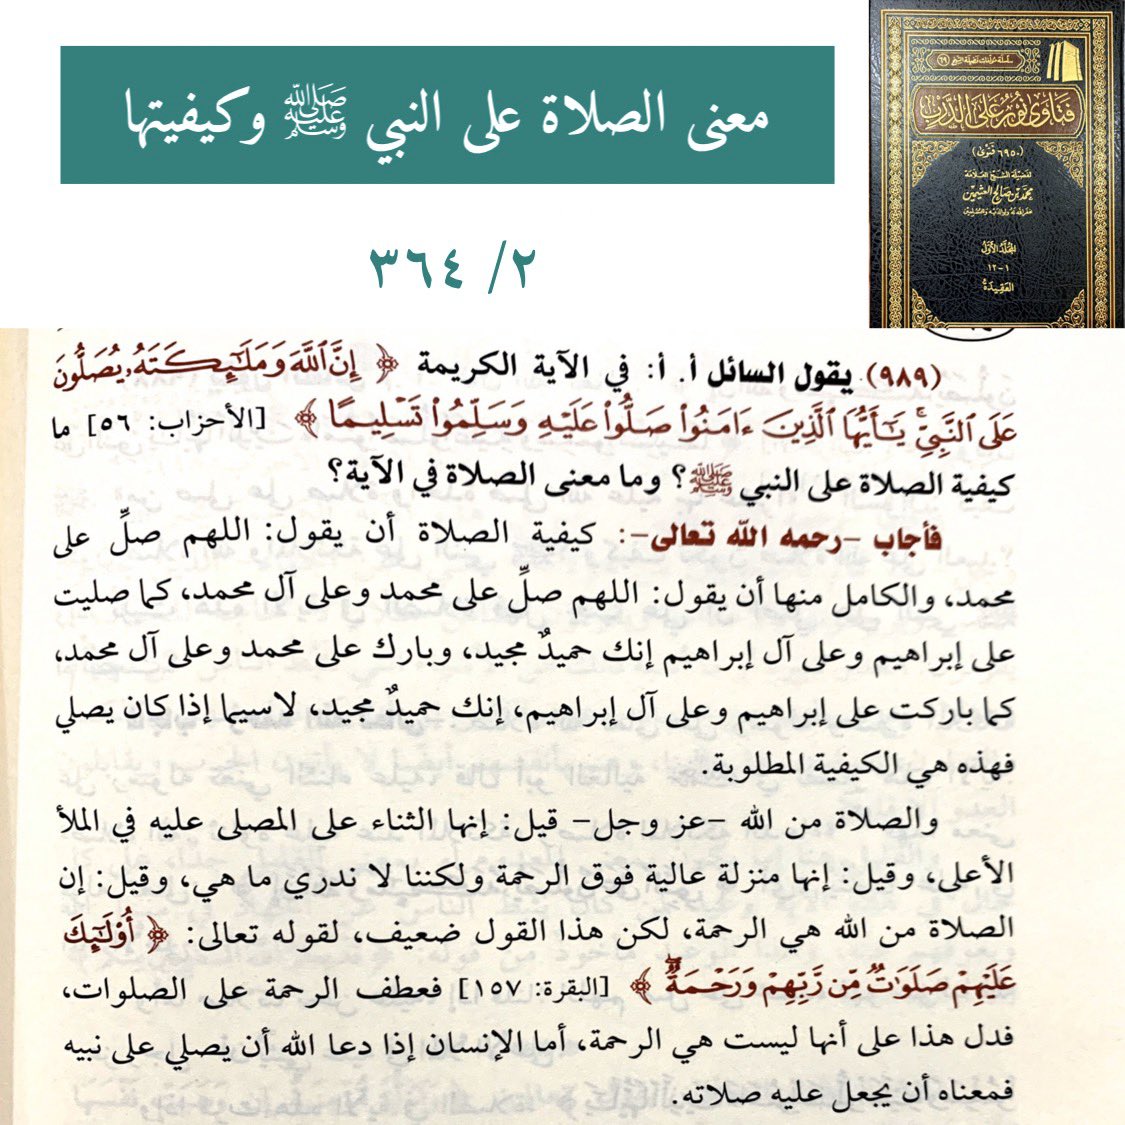 معنى الصلاة على النبي ﷺ وكيفيتها
٢/ ٣٦٤
سلسلة مؤلفات فضيلة الشيخ (٦٩)
فتاوى نور على الدرب
(٦٩٥٠ فتوى)
لفضيلة الشيخ العلامة
محمد بن صالح العثيمين
غفر الله له ولوالديه وللمسلمين
المجلد الأول
١-١٢
العقيدة
(٩٨٩) يقول السائل أ. أ: في الآية الكريمة ﴿إِنَّ ٱللَّهَ وَمَلَـٰٓئِكَتَهُۥ يُصَلُّونَ
عَلَى ٱلنَّبِيِّۚ يَـٰٓأَيُّهَا ٱلَّذِينَ ءَامَنُوا۟ صَلُّوا۟ عَلَيْهِ وَسَلِّمُوا۟ تَسْلِيمًا﴾ [الأحزاب: ٥٦] ما
كيفية الصلاة على النبي ﷺ؟ وما معنى الصلاة في الآية؟
فأجاب -رحمه الله تعالى-: كيفية الصلاة أن يقول: اللهم صلِّ على
محمد، والكامل منها أن يقول: اللهم صلِّ على محمد وعلى آل محمد، كما صليت
على إبراهيم وعلى آل إبراهيم إنك حميدٌ مجيد، وبارك على محمد وعلى آل محمد،
كما باركت على إبراهيم وعلى آل إبراهيم، إنك حميدٌ مجيد، لاسيما إذا كان يصلي
فهذه هي الكيفية المطلوبة.
والصلاة من الله -عز وجل- قيل: إنها الثناء على المصلى عليه في الملأ
الأعلى، وقيل: إنها منزلة عالية فوق الرحمة ولكننا لا ندري ما هي، وقيل: إن
الصلاة من الله هي الرحمة، لكن هذا القول ضعيف، لقوله تعالى: ﴿أُو۟لَـٰٓئِكَ
عَلَيْهِمْ صَلَوَٰتٌ مِّن رَّبِّهِمْ وَرَحْمَةٌۖ﴾ [البقرة: ١٥٧] فعطف الرحمة على الصلوات،
فدل هذا على أنها ليست هي الرحمة، أما الإنسان إذا دعا الله أن يصلي على نبيه
فمعناه أن يجعل عليه صلاته.